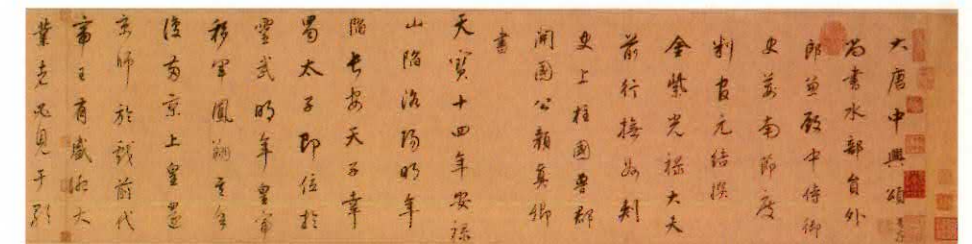 大唐中興頌
尚書水部員外
郎兼殿中侍御
史荊南節度
判官元結撰
金紫光祿大夫
前行撫州刺
史上柱國魯郡
開國公顏真卿
書
天寶十四年安祿
山陷洛陽明年
陷長安天子幸
蜀太子即位於
靈武明年皇帝
移軍鳳翔其年
復兩京上皇還
京師於戲前代
帝王有盛德大
業者必見于歌